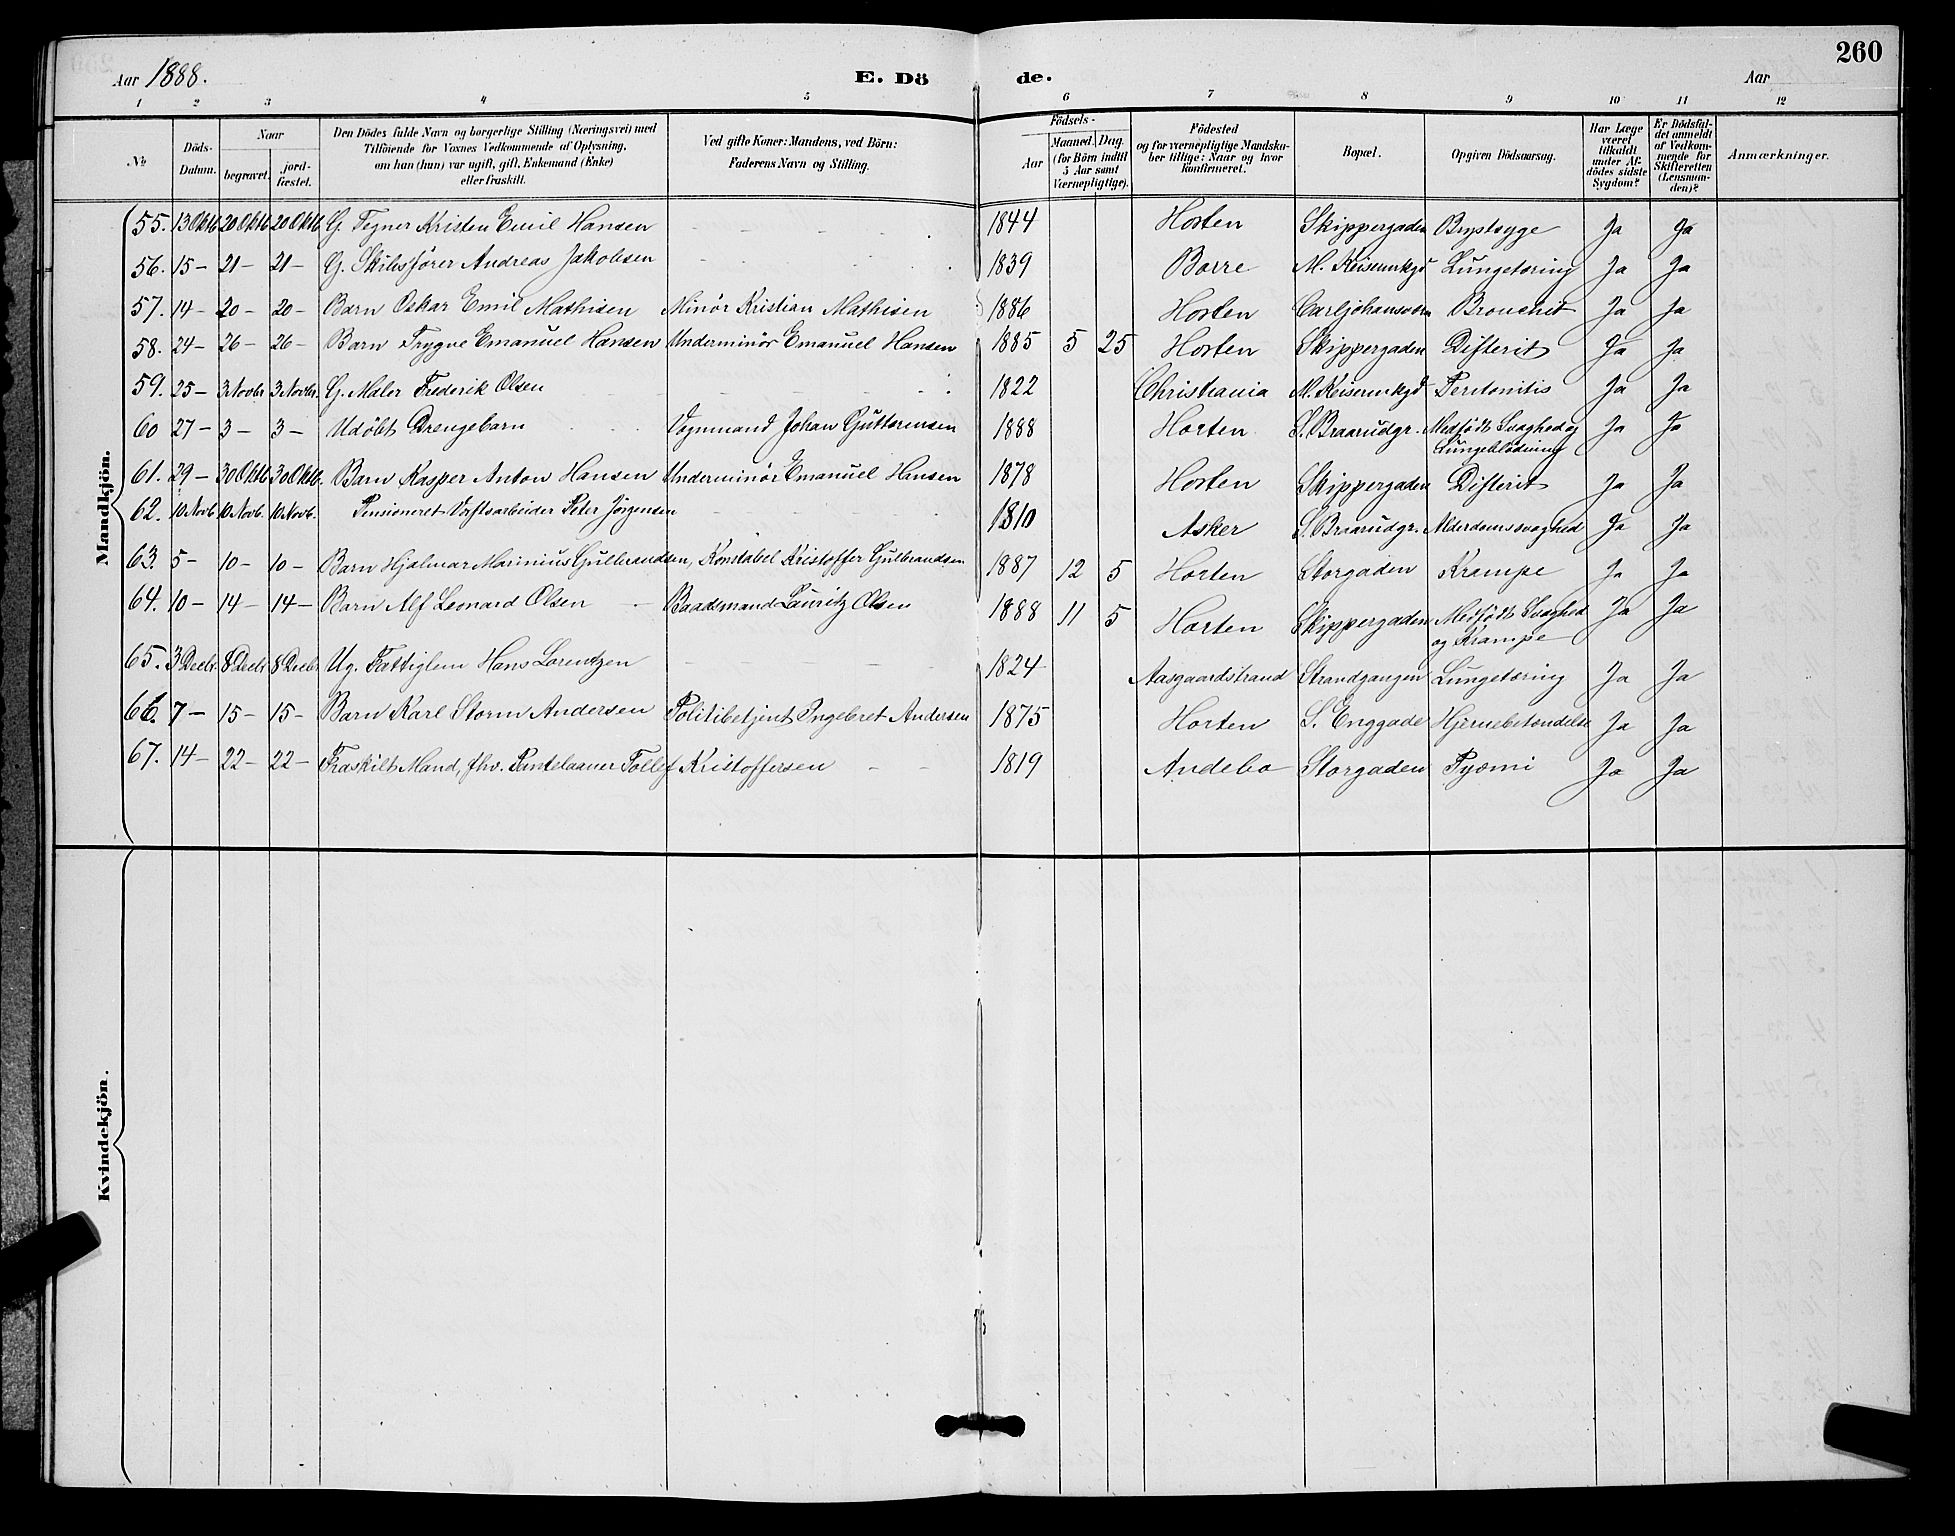 Aar 1888. E. Dö de. Aar 260
1 2 3 4 5 6 7 8 9 10 11 12
No
Döds-Datum.
Naar
begravet. jord-fæstet.
Den Dödes fulde Navn og borgerlige Stilling (Næringsvei) med
Tilföiende for Voxnes Vedkommende af Oplysning,
om han (hun) var ugift, gift, Enkemand (Enke)
eller fraskilt.
Ved gifte Koner: Mandens, ved Börn:
Faderens Navn og Stilling.
Födsels-
Aar Maaned. Dag.
(for Börn indtil
5 Aar samt
Værnepligtige).
Födested
og for værnepligtige Mandska-
ber tillige: Naar og hvor
konfirmeret.
Bopæl.
Opgiven Dödsaarsag.
Har Læge
været
tilkaldt
under Af-
dödes sidste
Sygdom?
Er Dödsfal-
det anmeldt
af Vedkom-
mende for
Skifteretten
(Lensman-
den)?
Anmærkninger.
Mandkjön.
55. 13 Oktb 20 Oktb 20 Oktb G. Tegner Kristen Emil Hansen 1844 Horten Skippergaden Brystsyge Ja Ja
56. 15 - 21 - 21 - G. Skibsfører Andreas Jakobsen 1839 Borre M. Keisemkgd Lungetæring Ja Ja
57. 14 - 20 - 20 - Barn Oskar Emil Mathisen Minör Kristian Mathisen 1886 Horten Carljohansværn Bronchit Ja Ja
58. 24 - 26 - 26 - Barn Trygve Emanuel Hansen Underminör Emanuel Hansen 1885 5 25 Horten Skippergaden Difterit Ja Ja
59. 25 - 3 Novbr 3 Novbr. G. Maler Frederik Olsen 1822 Christiania M. Keisemkgd Peritonitis Ja Ja
60 27 - 3 - 3 - Udöbt Drengebarn Vognmand Johan Guttormsen 1888 Horten S. Braarudgr. Medfödt Svaghed og
Lungeblödning Ja Ja
61. 29 - 30 Oktb 30 Oktb. Barn Kasper Anton Hansen Underminör Emanuel Hansen 1878 Horten Skippergaden Difterit Ja Ja
62. 10 Novb 10 Novb. 10 Novb. Pensioneret Værftsarbeider Peter Jörgensen 1810 Asker S. Braarudgr. Alderdomssvaghed Ja Ja
63. 5 - 10 - 10 - Barn Hjalmar Marinius Gulbrandsen, Konstabel Kristoffer Gulbrandsen 1887 12 5 Horten Storgaden Krampe Ja Ja
64. 10 - 14 - 14 - Barn Alf Leonard Olsen Baadsmand Lauritz Olsen 1888 11 5 Horten Skippergaden Medfödt Svaghed
og Krampe Ja Ja
65. 3 Decbr 8 Decbr 8 Decbr Ug. Fattiglem Hans Lorentzen 1824 Aasgaardstrand Strandgangen Lungetæring Ja Ja
66. 7 - 15 - 15 - Barn Karl Storm Andersen Politibetjent Ingebret Andersen 1875 Horten S. Enggade Hjernebetændelse Ja Ja
67. 14 - 22 - 22 - Fraskilt Mand, fhv. Tollef Kristoffersen 1819 Andebo Storgaden Pyæmi Ja Ja
Kvindekjön.